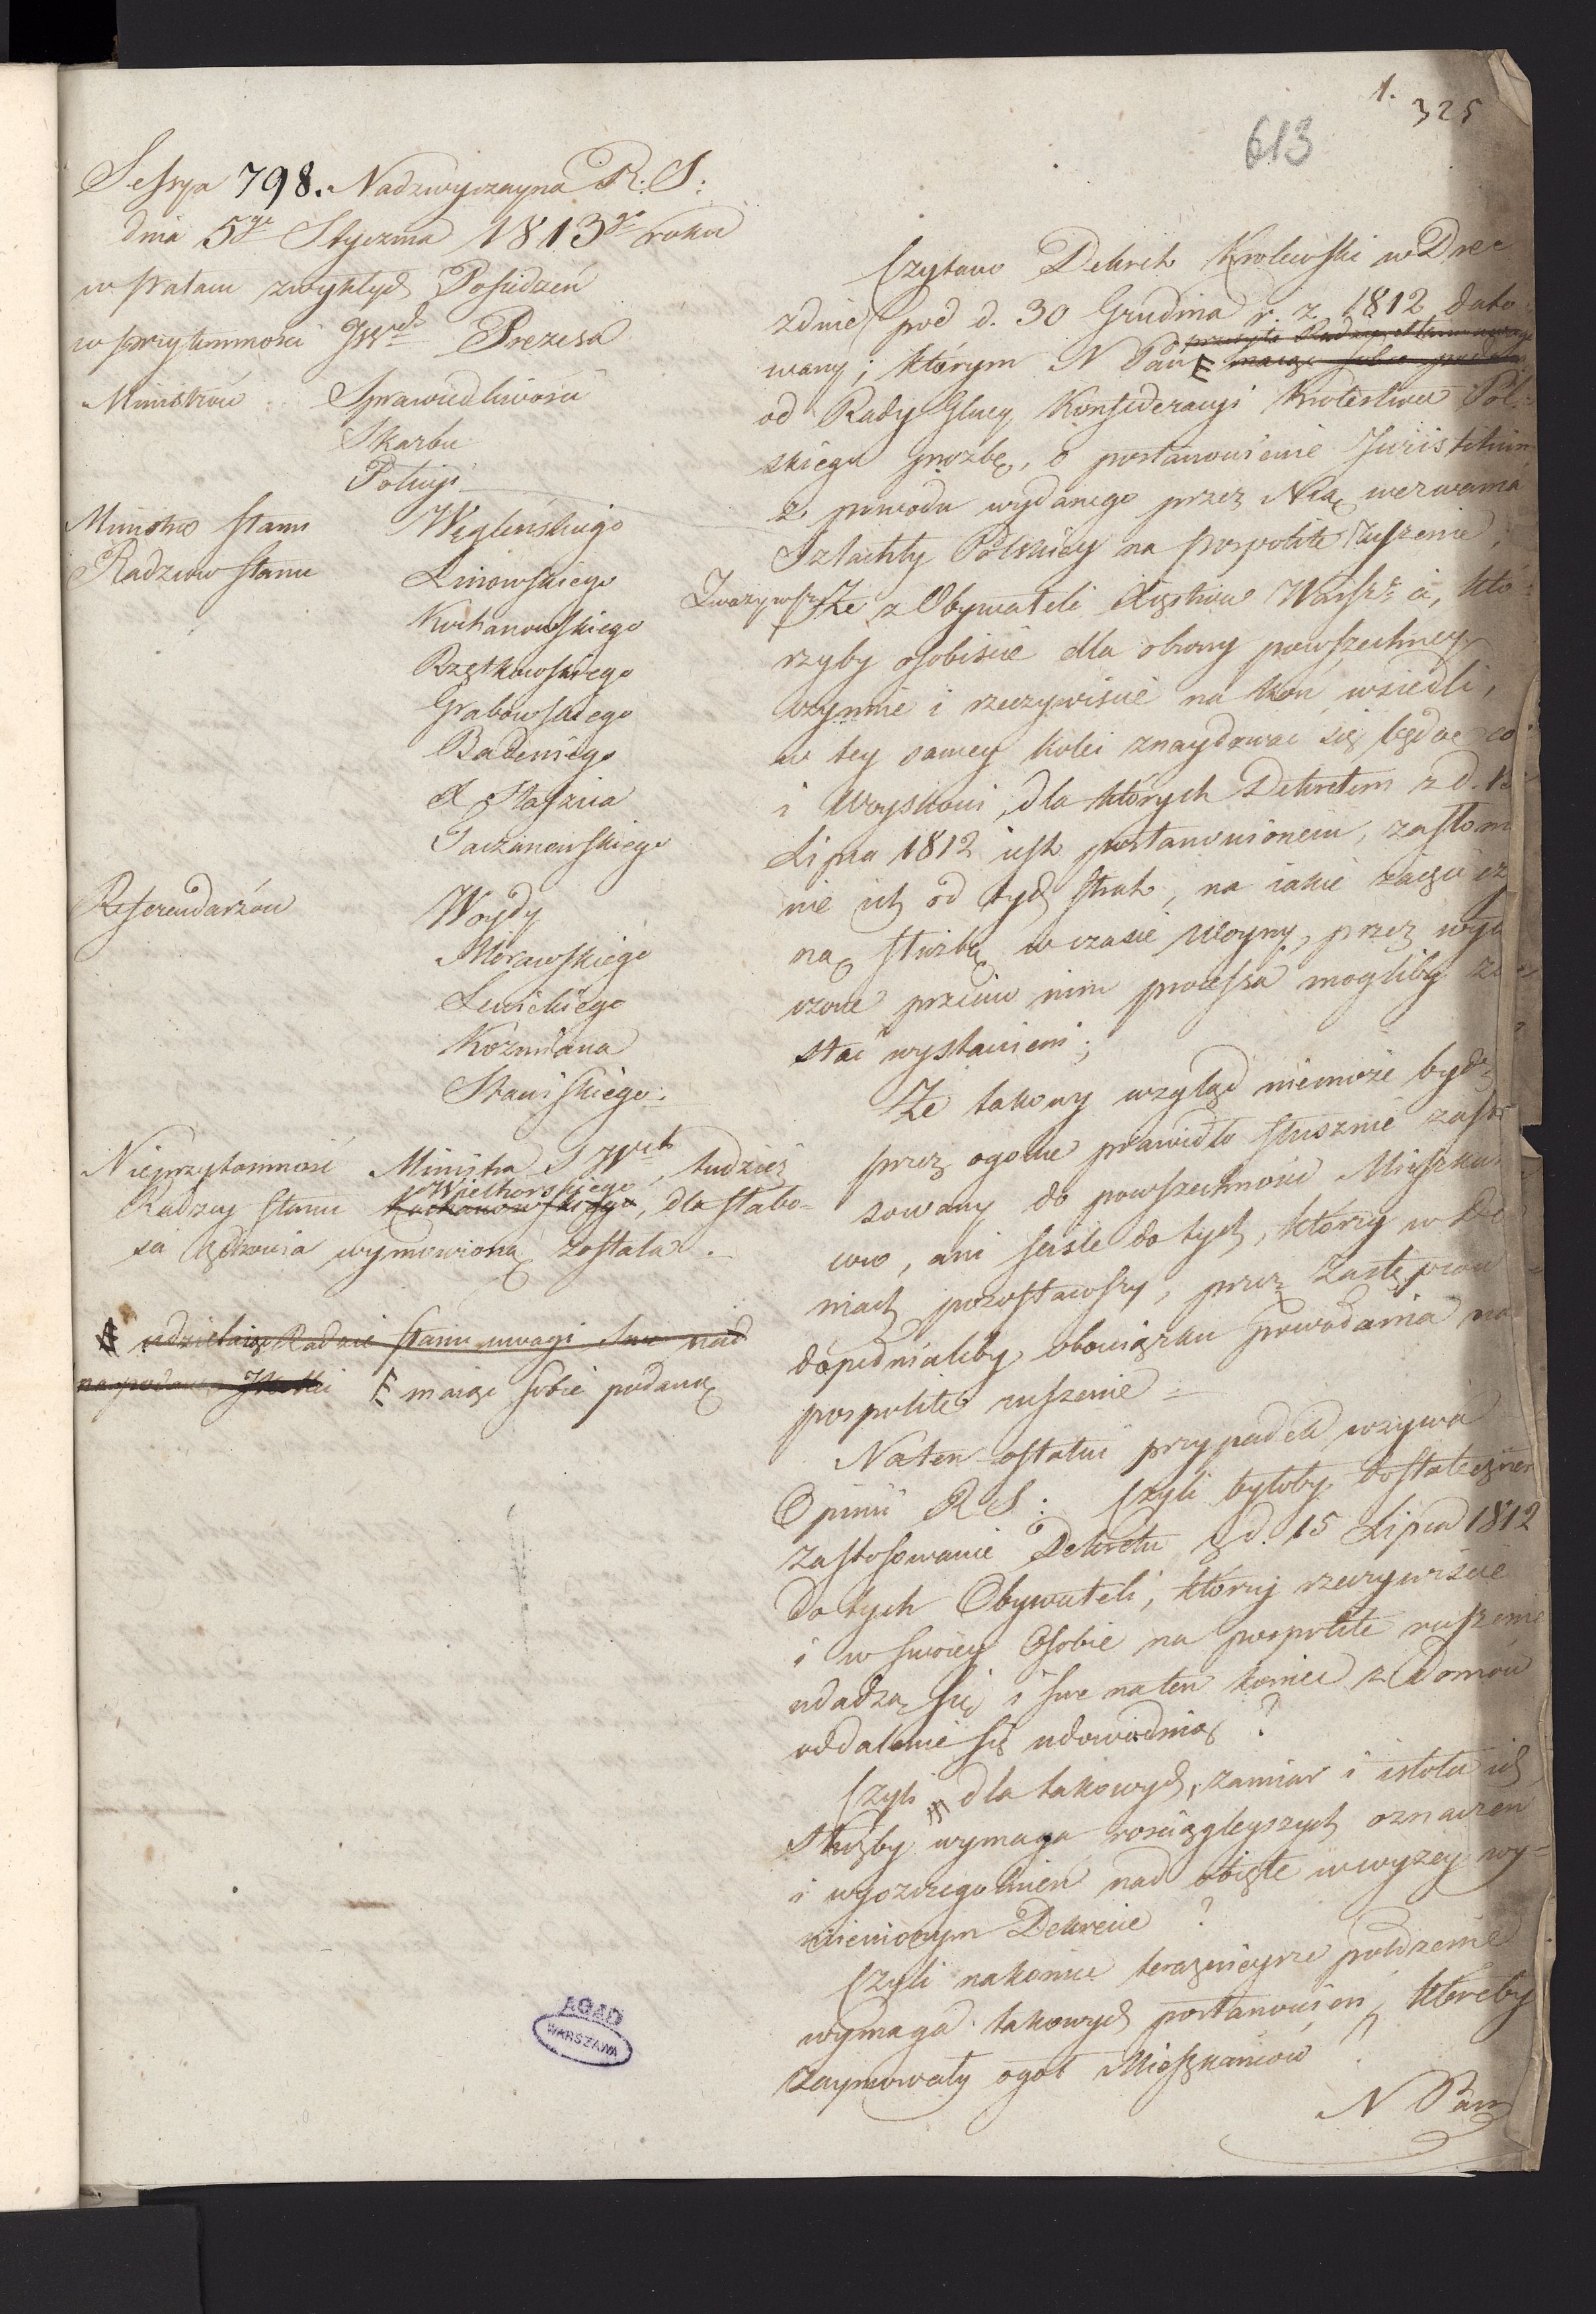 1. 325
613
Sessya 798. Nadzwyczayna R: S:
dnia 5go Stycznia 1813go roku
w pałacu zwykłych Posiedzeń
w przytomności JWch Prezesa
Ministrów Sprawiedliwości
Skarbu
Policyi
Ministra Stanu Węgleńskiego
Radzców Stanu Linowskiego
Kochanowskiego
Rzętkowskiego
Grabowskiego
Badeniego
X Staszica
Taczanowskiego
Referendarzów Woydy
Morawskiego
Lewickiego
Koźmiana
Stawiskiego.
Nieprzytomność Ministra JWch tudzież
Wielhorskiego
Radzcy Stanu Kochanowskiego, dla słabo=
ści zdrowia wymowioną została.
udzielaiąc Radzie Stanu uwagi Swe nad
maiąc sobie podaną
Czytano Dekret Krolewski w Dre
znie pod d. 30 Grudnia r. z. 1812 dato
wany; którym N Pan maiąc sobie podaną
od Rady Głney Konfederacyi Krolestwa Pol=
skiego prozbę, o postanowienie Juristitium
z powodu wydanego przez Nią wezwania
Szlachty Polskiey na pospolite ruszenie;
Zważywszy Że z Obywateli Xięstwa Warsz: ci, któ=
rzyby osobiście dla obrony powszechney
czynnie i rzeczywiście na koń wsiedli,
w tey samey kolei znaydować się będą co
i Woyskowi, dla których Dekretem z d. 15
Lipca 1812 iest postanowionem, zasłonie
nie ich od tych strat, na iakie zacią
ną służbę w czasie Woyny, przez wyto
czone przeciw nim processa mogliby zo
stać wystawieni;
Że takowy wzgląd niemoże bydź
przez ogolne prawidło słusznie zasto
sowany do powszechności Mieszkań
cow, ani ściśle do tych, którzy w Do
mach pozostawszy, przez Zastępców
dopełnialiby obowiązku powołania na
pospolite ruszenie =
Na ten ostatni przypadek wzywa
Opinii R S: Czyli byłoby dostateczne
zastosowanie Dekretu z d. 15 Lipca 1812
do tych Obywateli, którzy rzeczywiście
i w swoiey Osobie na pospolite ruszenie
udadzą się i swe na ten koniec z Domów
oddalenie się udowodnią?
Czyli dla takowych, zamiar i istota ich
Służby wymaga rościągleyszych oznaczeń
i wyszczególnień nad obięte w wyzey wy=
mienionym Dekrecie?
Czyli nakoniec teraznieysze położenie
wymaga takowych postanowień, któreby
zaymowały ogoł Mieszkańców?
N Pan
AGAD
WARSZAWA